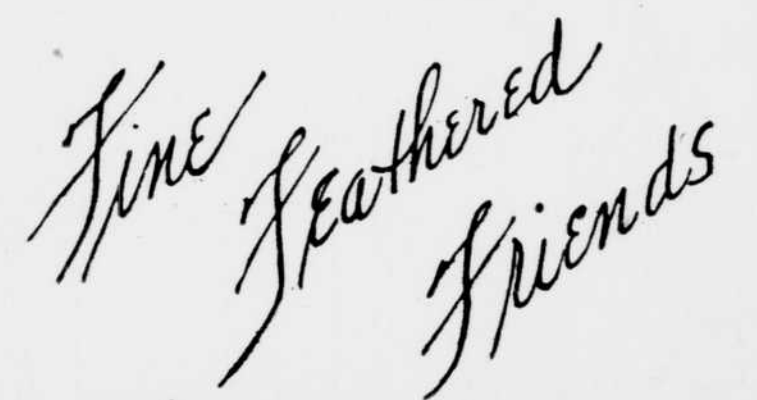 Fine
Feathered
Friends